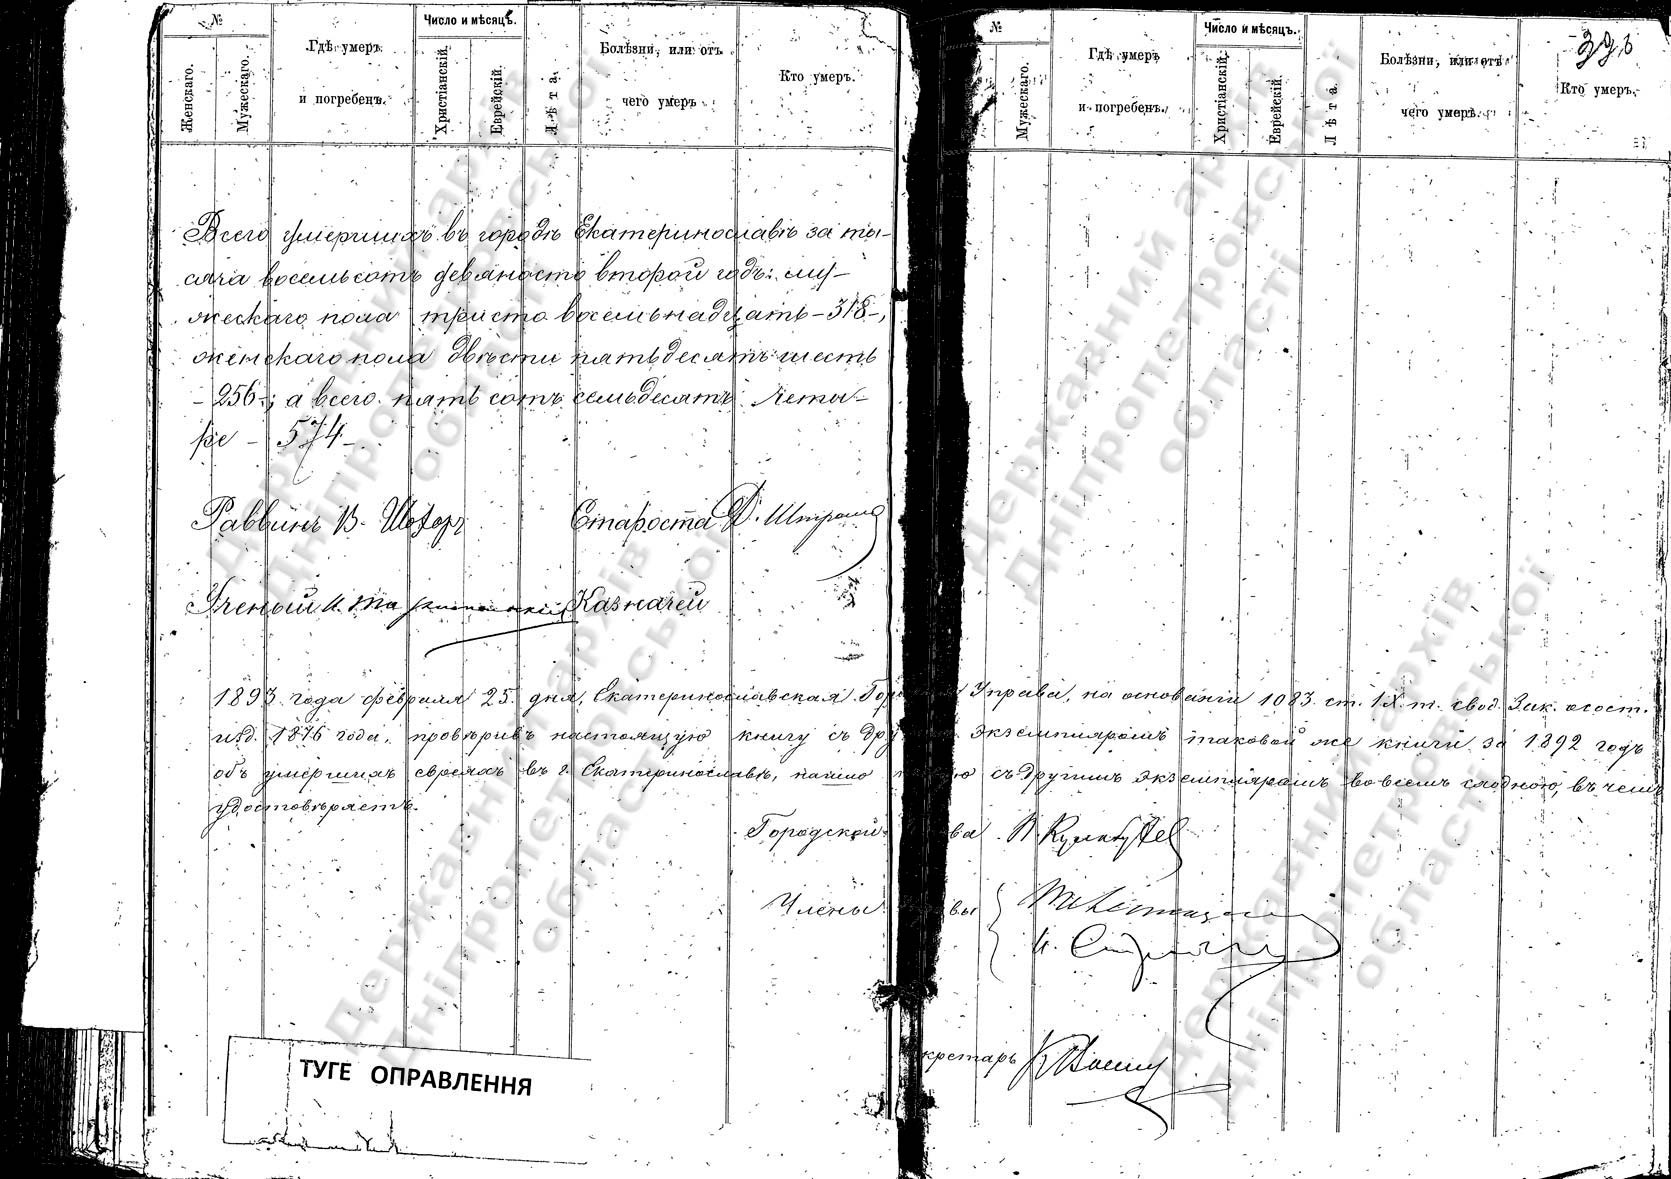 №
Женскаго.
Мужескаго.
Гдѣ умеръ
и погребенъ.
Число и мѣсяцъ.
Христіанскій.
Еврейскій.
Лѣта.
Болѣзни, или отъ
чего умеръ
Кто умеръ.
Всего умершихъ въ городѣ Екатеринославѣ за ты-
сяча восемьсотъ девяносто второй годъ: му-
жескаго пола триста восемьнадцать - 318 -,
женскаго пола двѣсти пятьдесятъ шесть
- 256 -; а всего пять сотъ семьдесятъ четы-
ре - 574 -
Раввинъ В. Шохоръ Староста Д.
Ученый И. Казначей
№
Мужескаго.
Гдѣ умеръ
и погребенъ.
Число и мѣсяцъ.
Христіанскій.
Еврейскій.
Лѣта.
Болѣзни, или отъ
чего умеръ.
Кто умеръ.
1893 года февраля 25 дня, Екатеринославская Гор Управа, на основаніи 1083 ст. IX т. свод. Зак. о сост.
изд. 1876 года, провѣривъ настоящую книгу съ дру экземпляромъ таковой же книги за 1892 годъ
объ умершихъ евреяхъ въ г. Екатеринославѣ, нашла ю съ другимъ экземпляромъ во всемъ сходною, въ чемъ
удостовѣряетъ.
Городской ва
Члены вы
кретарь
ТУГЕ ОПРАВЛЕННЯ
Державний архів
Дніпропетровської
області